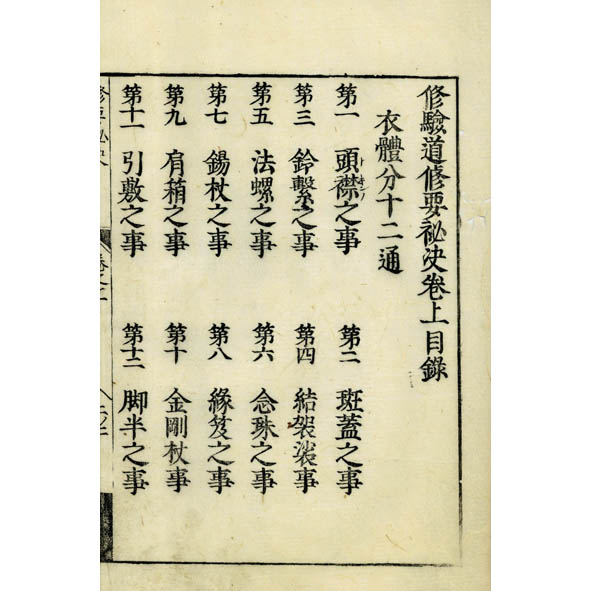 修驗道修要祕決卷上目錄
衣體分十二通
第一 頭襟之事 第二 斑蓋之事
第三 鈴繫之事 第四 結袈裟之事
第五 法螺之事 第六 念珠之事
第七 錫杖之事 第八 緣笈之事
第九 肩箱之事 第十 金剛杖事
第十一 引敷之事 第十二 脚半之事